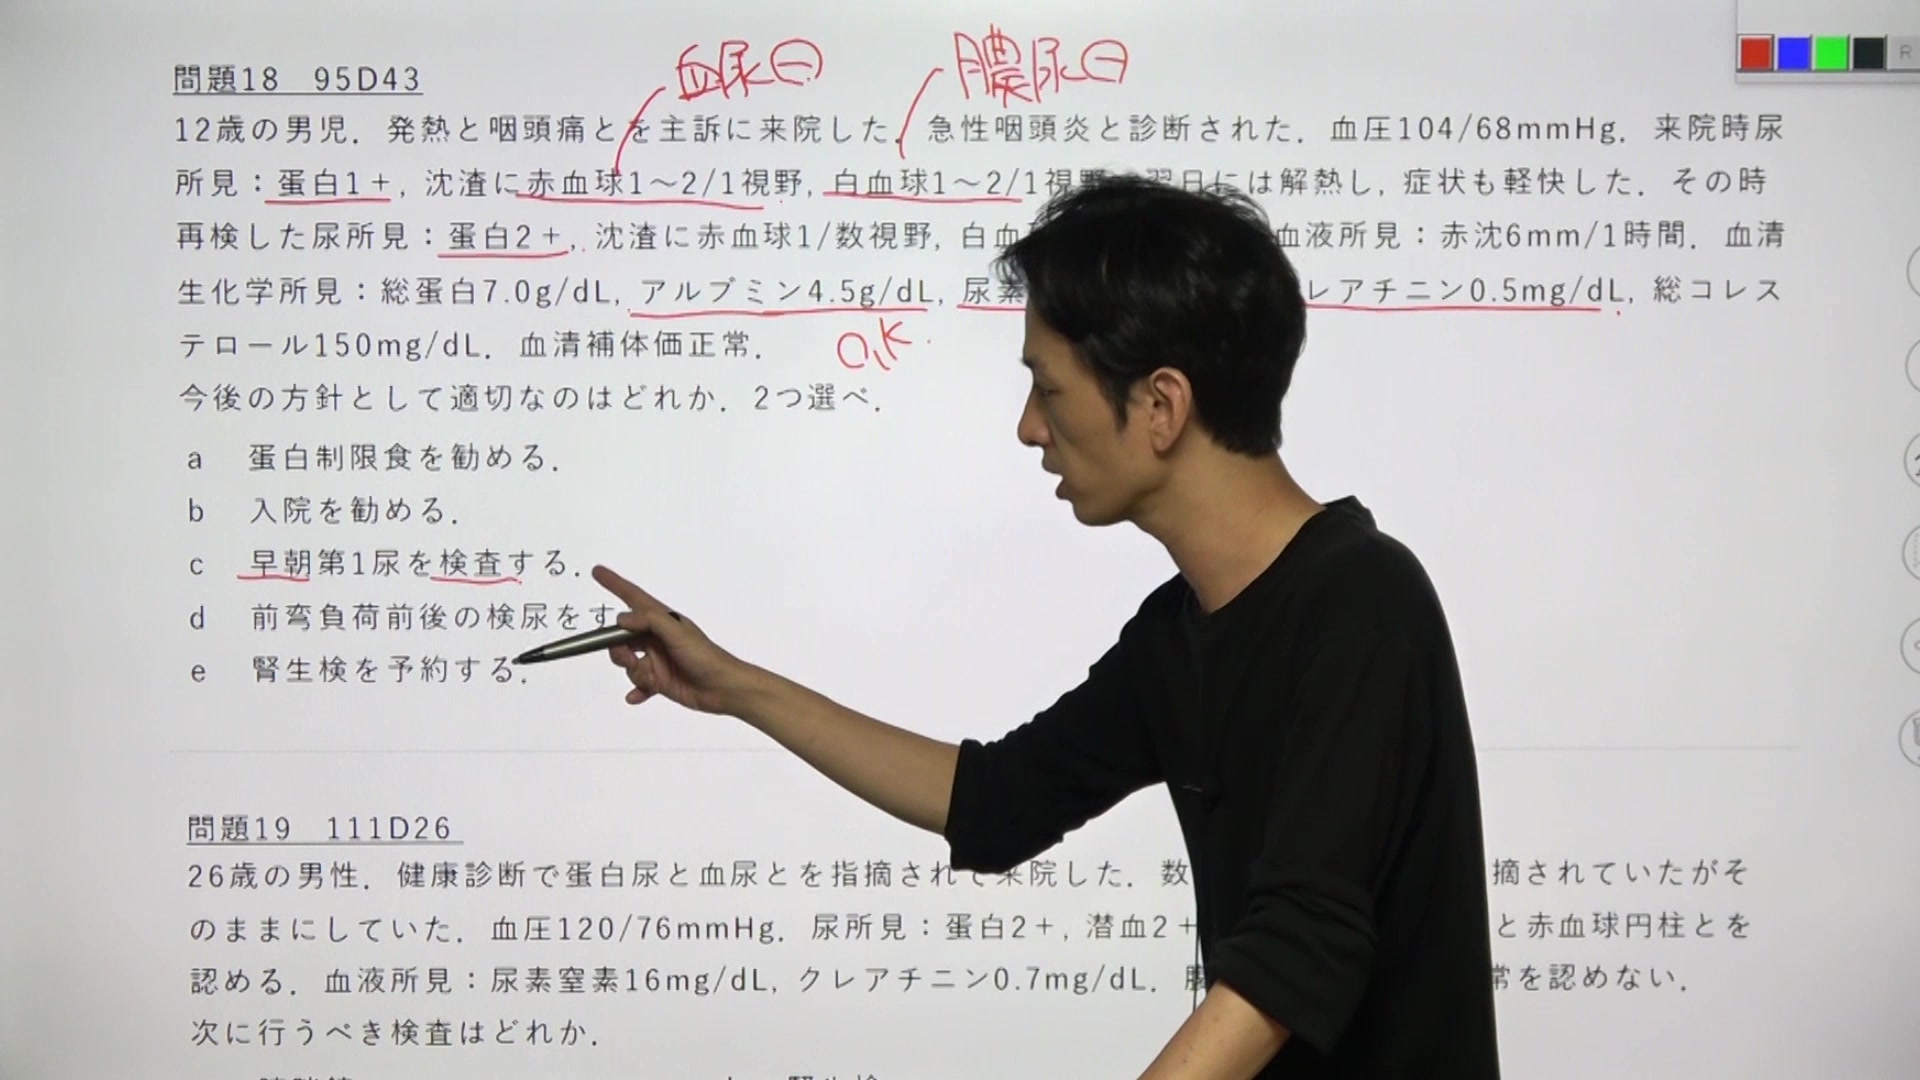 血尿⊖ 膿尿⊖
問題18 95D43
12歳の男児．発熱と咽頭痛とを主訴に来院した．急性咽頭炎と診断された．血圧104/68mmHg．来院時尿
所見：蛋白1＋, 沈渣に赤血球1～2/1視野, 白血球1～2/1視野 翌日には解熱し, 症状も軽快した．その時
再検した尿所見：蛋白2＋, 沈渣に赤血球1/数視野, 白血 血液所見：赤沈6mm/1時間．血清
生化学所見：総蛋白7.0g/dL, アルブミン4.5g/dL, 尿素 レアチニン0.5mg/dL, 総コレス
テロール150mg/dL．血清補体価正常．
O.K.
今後の方針として適切なのはどれか．2つ選べ．
a 蛋白制限食を勧める．
b 入院を勧める．
c 早朝第1尿を検査する．
d 前弯負荷前後の検尿をす
e 腎生検を予約する．
問題19 111D26
26歳の男性．健康診断で蛋白尿と血尿とを指摘されて来院した．数 摘されていたがそ
のままにしていた．血圧120/76mmHg．尿所見：蛋白2＋, 潜血2＋ と赤血球円柱とを
認める．血液所見：尿素窒素16mg/dL, クレアチニン0.7mg/dL． 常を認めない．
次に行うべき検査はどれか．
R